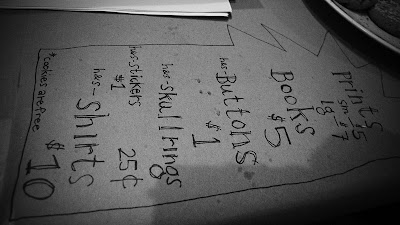 prints
sm $5
lg $7
Books
$5
has-Buttons
$1
has-skullrings
25¢
has-stickers
$1
has-shirts
$10
*cookies are free